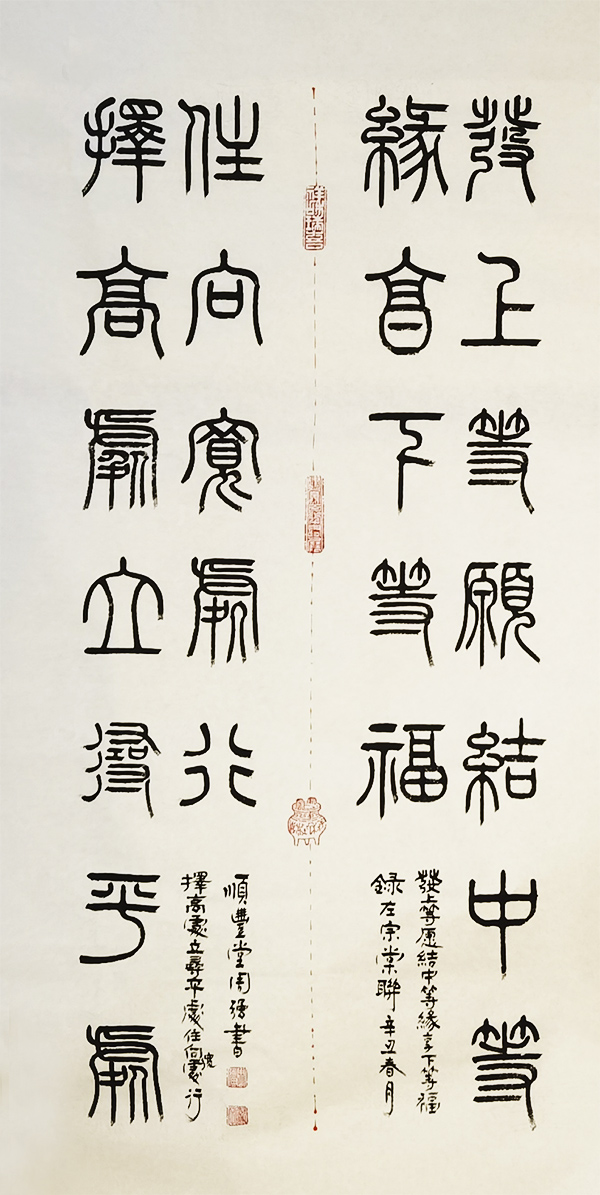 發上等願結中等
緣享下等福
發上等愿結中等緣享下等福
録左宗棠聯辛丑春月
擇高處立尋平處
住向寬處行
擇高處立尋平處住向寬處行
順豐堂周强書